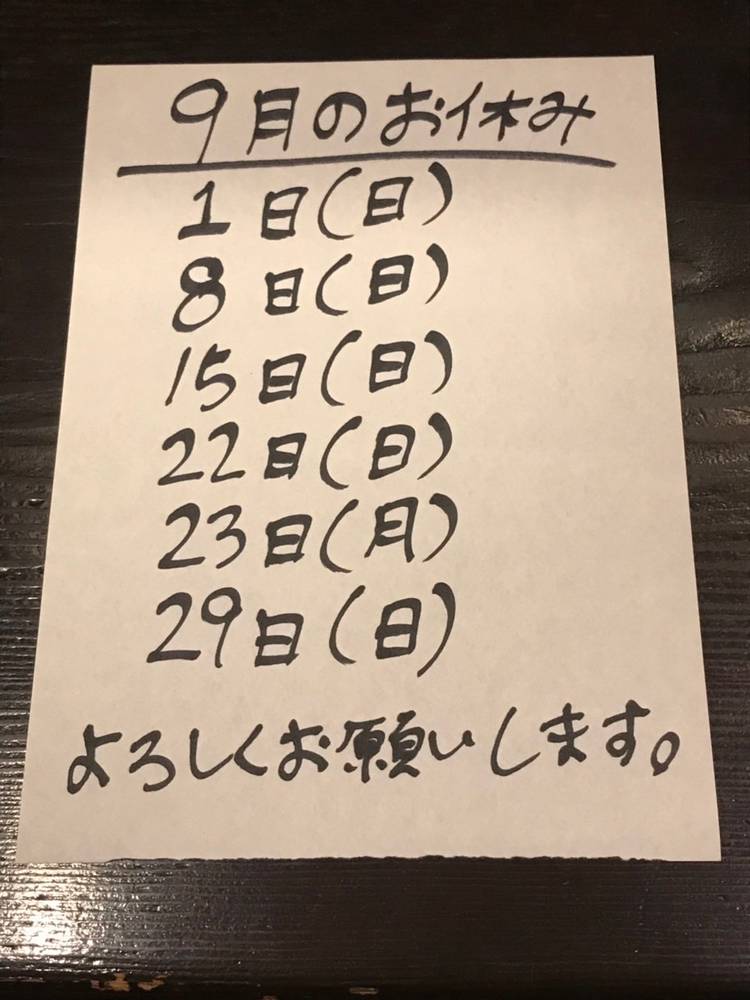 9月のお休み
1日(日)
8日(日)
15日(日)
22日(日)
23日(月)
29日(日)
よろしくお願いします。